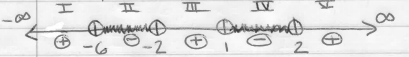 I II III IV V
-∞ ∞
⊕ -6 ⊖ -2 ⊕ 1 ⊖ 2 ⊕